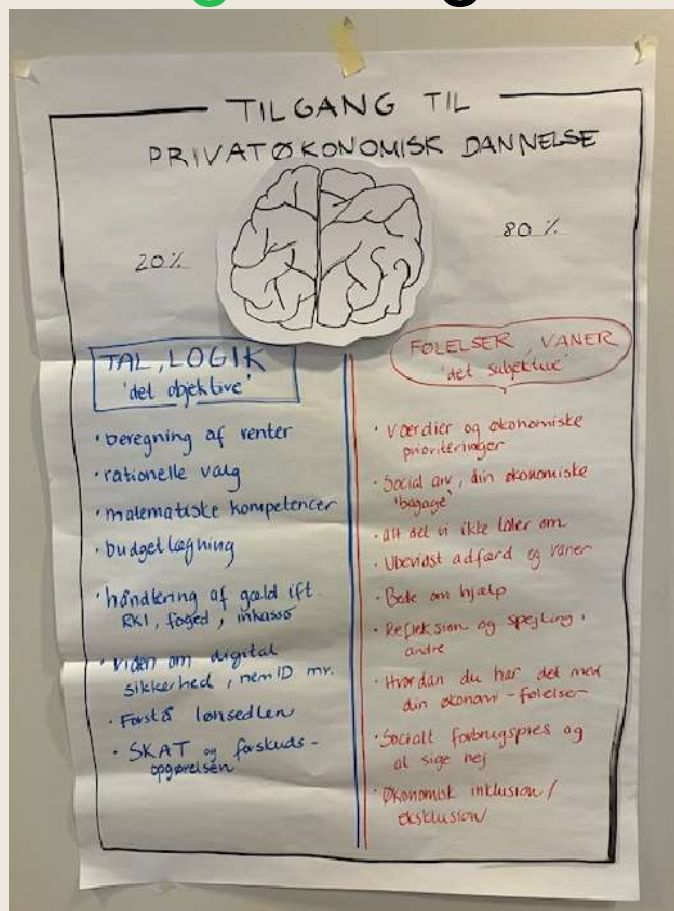 TILGANG TIL
PRIVATØKONOMISK DANNELSE
20%
80%
TAL, LOGIK
'det objektive'
· beregning af renter
· rationelle valg
· matematiske kompetencer
· budgetlægning
· håndtering af gæld ift.
RKI, foged, inkasso
· viden om digital
sikkerhed, nemID mv.
· Forstå lønsedlen
· SKAT og forskuds-
opgørelsen
FØLELSER, VANER
'det subjektive'
· Værdier og økonomiske
prioriteringer
· Social arv, din økonomiske
'bagage'
· alt det vi ikke taler om
· Ubevidst adfærd og vaner
· Bede om hjælp
· Refleksion og spejling i
andre
· Hvordan du har det med
din økonomi - følelser
· Socialt forbrugspres og
at sige nej
· Økonomisk inklusion/
eksklusion/